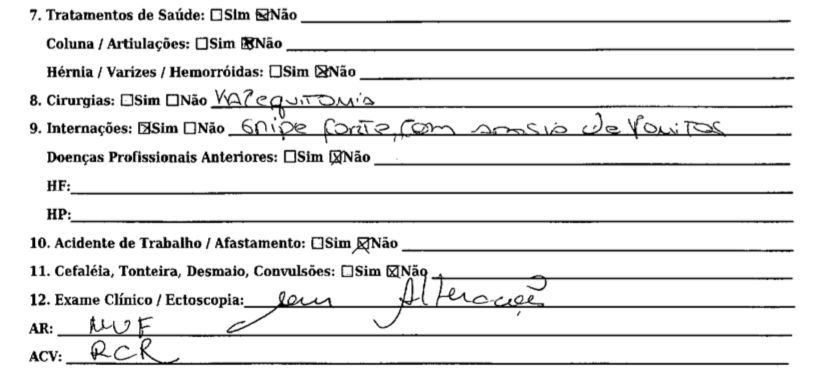 7. Tratamentos de Saúde: ☐Sim ☒Não
Coluna / Artiulações: ☐Sim ☒Não
Hérnia / Varizes / Hemorróidas: ☐Sim ☒Não
8. Cirurgias: ☐Sim ☐Não Vazequitomia
9. Internações: ☒Sim ☐Não Gripe forte, com ansia de Vomitos
Doenças Profissionais Anteriores: ☐Sim ☒Não
HF:
HP:
10. Acidente de Trabalho / Afastamento: ☐Sim ☒Não
11. Cefaléia, Tonteira, Desmaio, Convulsões: ☐Sim ☒Não
12. Exame Clínico / Ectoscopia: sem Alteração
AR: MVF
ACV: RCR